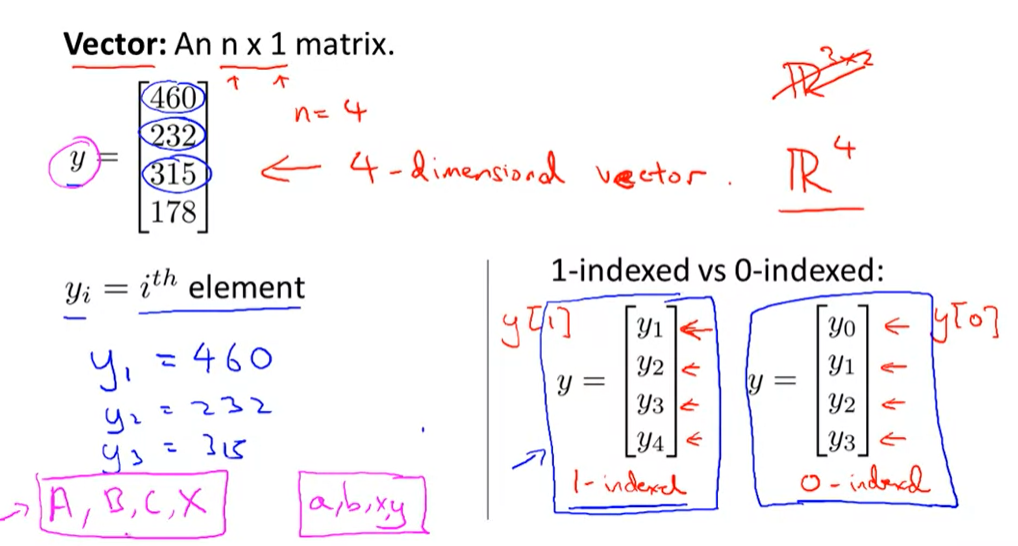 Vector: An n x 1 matrix.
ℝ^{3×2}
n = 4
y = [460
232
315
178]
← 4-dimensional vector.
ℝ^4
y_i = i^{th} element
y_1 = 460
y_2 = 232
y_3 = 315
A, B, C, X
a,b,x,y
1-indexed vs 0-indexed:
y[1]
y = [y_1
y_2
y_3
y_4]
1-indexed
y[0]
y = [y_0
y_1
y_2
y_3]
0-indexed